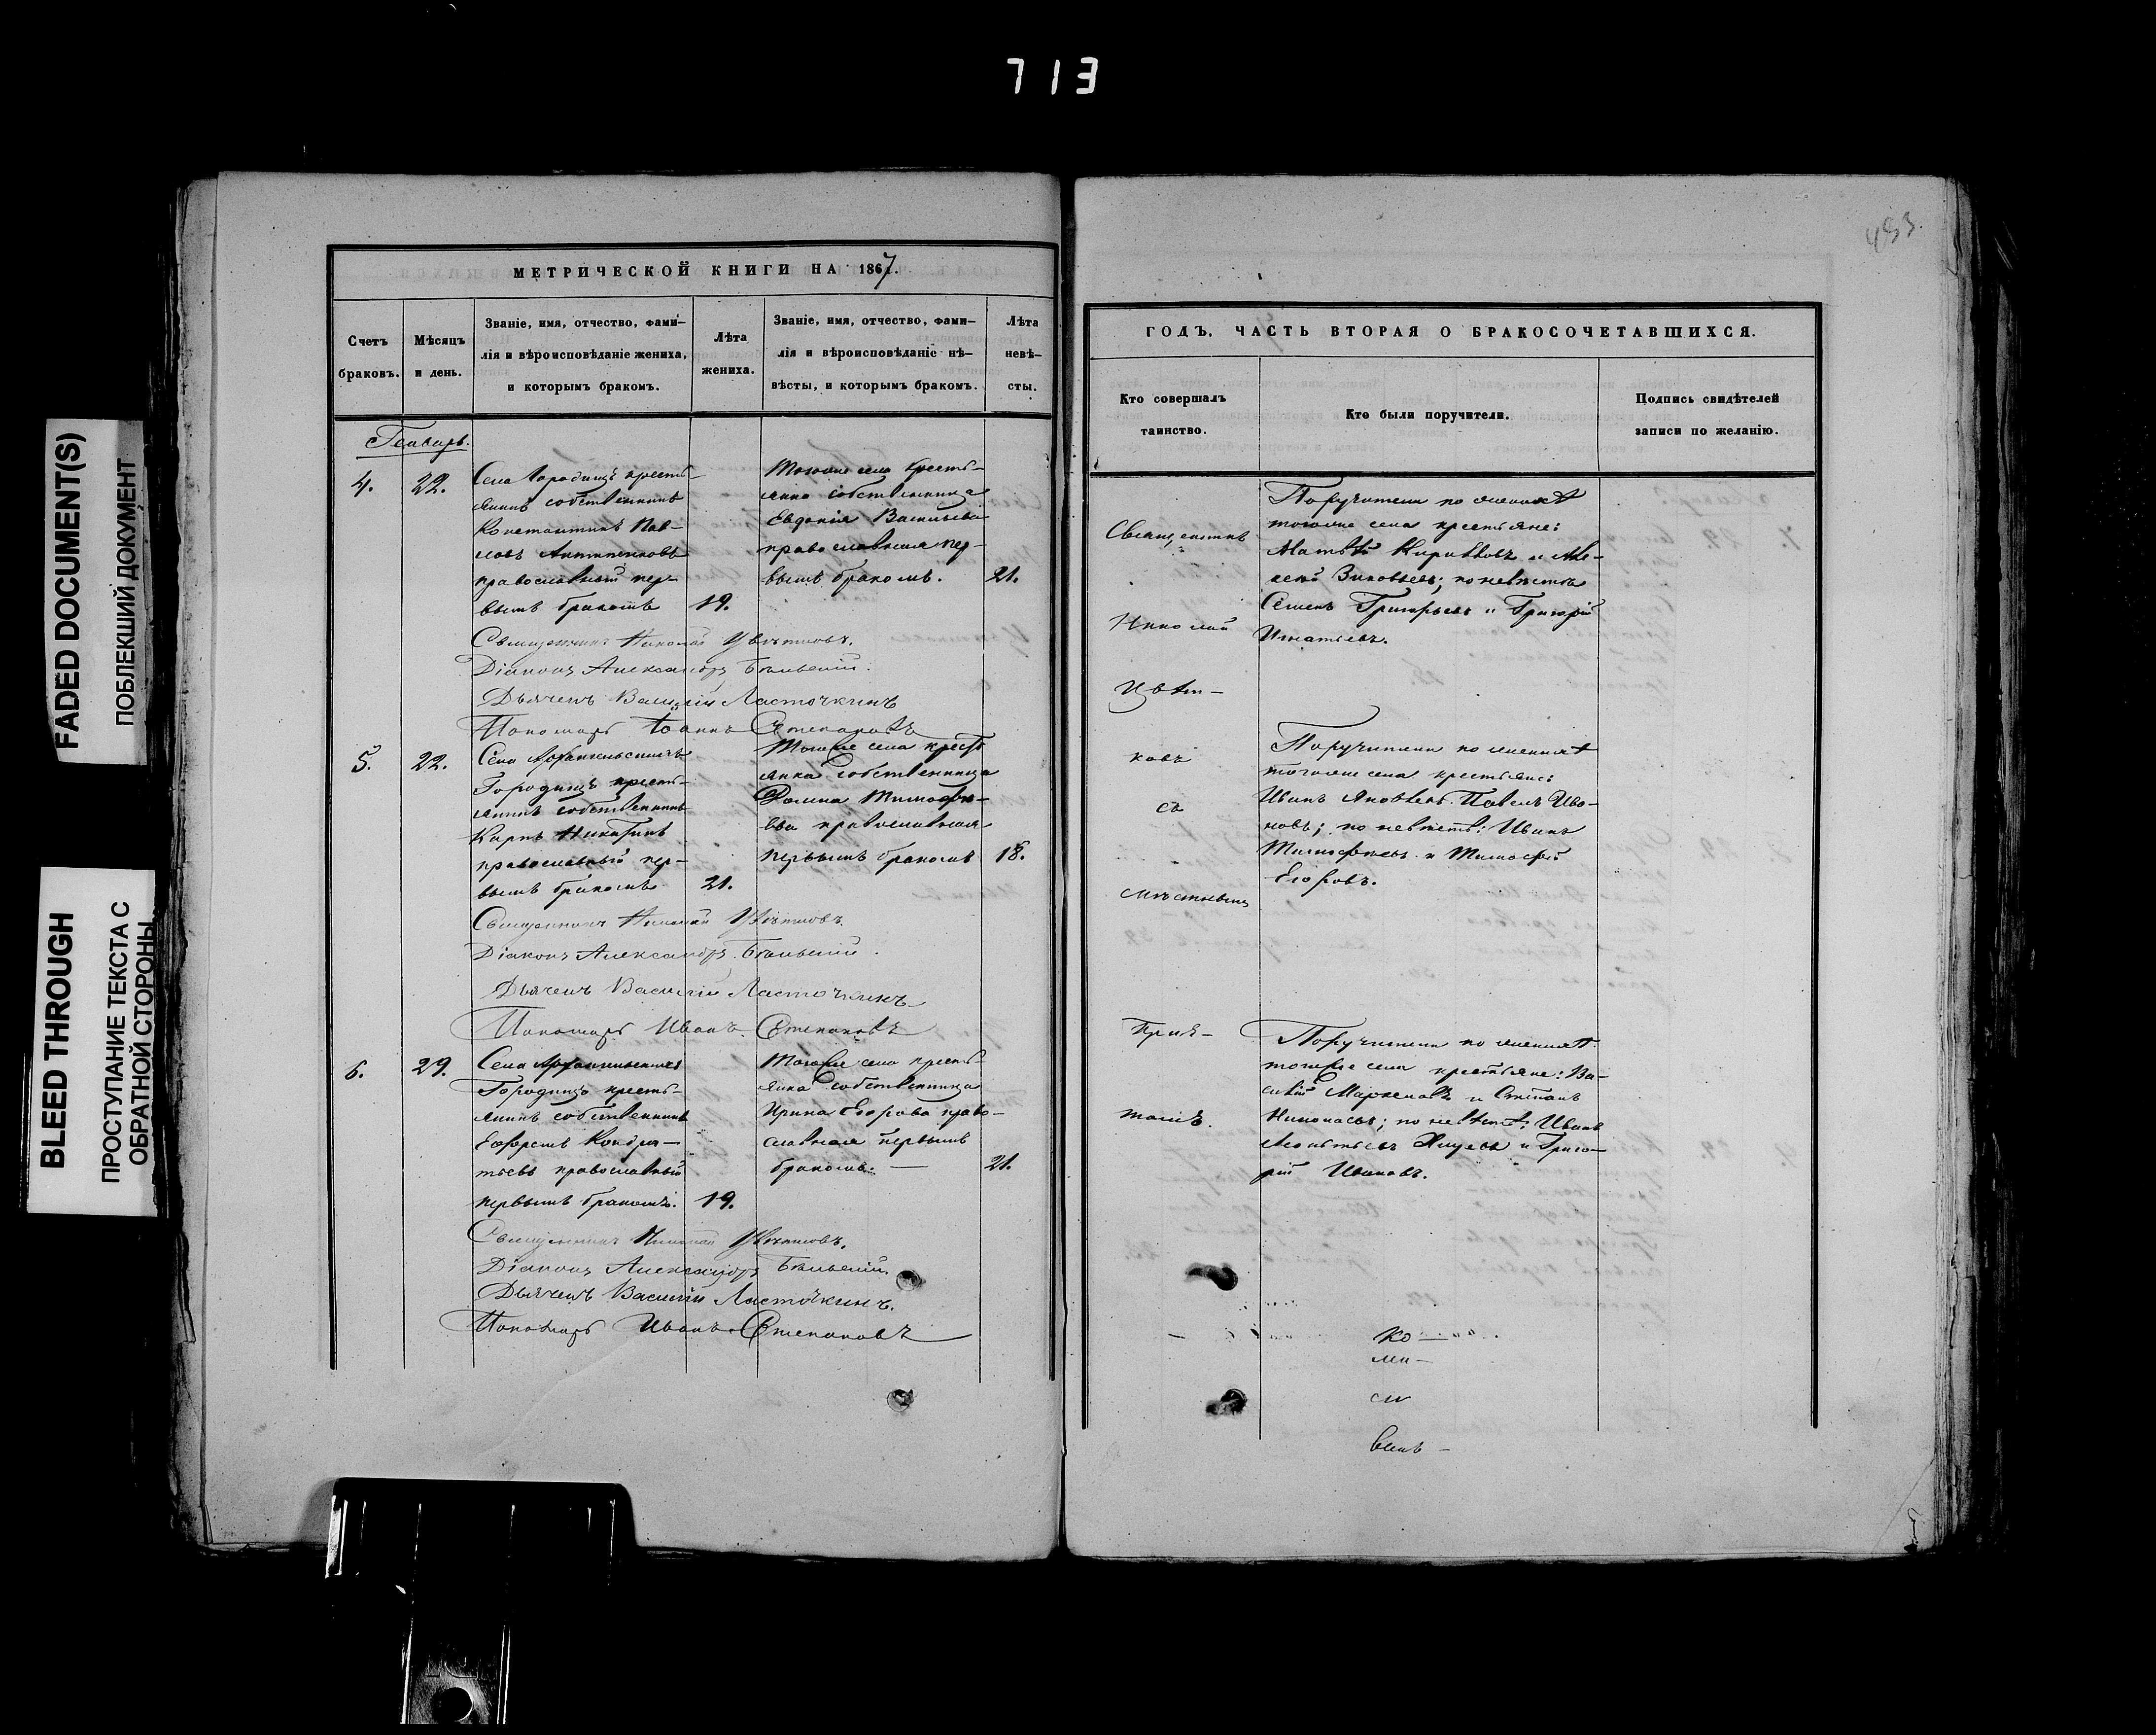 713
FADED DOCUMENT(S)
ПОБЛЕКШИЙ ДОКУМЕНТ
BLEED THROUGH
ПРОСТУПАНИЕ ТЕКСТА С
ОБРАТНОЙ СТОРОНЫ
МЕТРИЧЕСКОЙ КНИГИ НА 1867.
Счетъ
браковъ.
Мѣсяцъ
и день.
Званіе, имя, отчество, фами-
лія и вѣроисповѣданіе жениха,
и которымъ бракомъ.
Лѣта
жениха.
Званіе, имя, отчество, фами-
лія и вѣроисповѣданіе нѣ-
вѣсты, и которымъ бракомъ.
Лѣта
невѣ-
сты.
Генварь.
4.
22.
Села Городищъ кресть-
янинъ собственникъ
Константинъ Пав-
ловъ
православный пер-
вымъ бракомъ
19.
Тогоже села кресть-
янка собственница
Евдокія Васильева
православная пер-
вымъ бракомъ.
21.
Священникъ Николай Цвѣтковъ.
Діаконъ Александръ
Дьячекъ Василій Ласточкинъ
Пономарь Іоаннъ Степановъ
5.
22.
Села Архангельскихъ
Городищъ кресть-
янинъ собственникъ
Карпъ Никитинъ
православный пер-
вымъ бракомъ
21.
Тогоже села кресть
янка собственница
Домна Тимофѣ-
ева православная
первымъ бракомъ
18.
Священникъ Николай Цвѣтковъ.
Діаконъ Александръ
Дьячекъ Василій Ласточкинъ
Пономарь Иванъ Степановъ
6.
29.
Села Архангельскихъ
Городищъ кресть-
янинъ собственникъ
Ефремъ Кондра-
тьевъ православный
первымъ бракомъ.
19.
Тогоже села кресть-
янка собственница
Ирина Егорова право-
славная первымъ
бракомъ.
21.
Священникъ Николай Цвѣтковъ.
Діаконъ Александръ
Дьячекъ Василій Ласточкинъ.
Пономарь Иванъ Степановъ
453.
ГОДЪ, ЧАСТЬ ВТОРАЯ О БРАКОСОЧЕТАВШИХСЯ.
Кто совершалъ
таинство.
Кто были поручители.
Подпись свидѣтелей
записи по желанію.
Священникъ
Николай
Цвѣт-
ковъ
съ
мѣстнымъ
Прич-
томъ.
Поручители по женихѣ
тогоже села крестьяне:
Матвѣй Кириловъ и Але-
ксѣй Зиновьевъ; по невѣстѣ
Семенъ Григорьевъ и Григорій
Игнатьевъ.
Поручители по женихѣ
тогоже села крестьяне:
Иванъ Яковлевъ Павелъ Ива-
новъ; по невѣстѣ: Иванъ
Тимофѣевъ и Тимофѣй
Егоровъ.
Поручители по женихѣ
тогоже села крестьяне: Ва-
силій и Степанъ
Николаевъ; по невѣстѣ: Иванъ
и Григо-
рій Ивановъ.